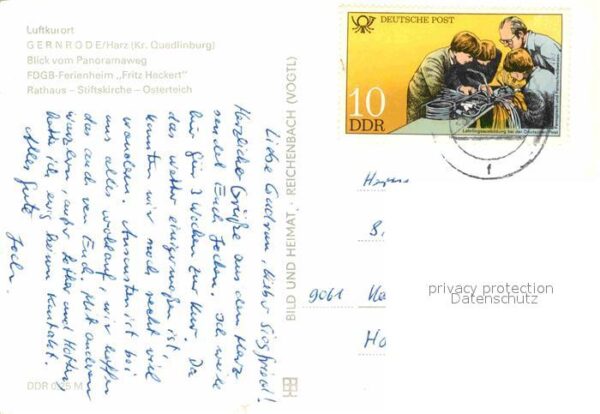 Luftkurort
GERNRODE/Harz (Kr. Quedlinburg)
Blick vom Panoramaweg
FDGB-Ferienheim „Fritz Heckert"
Rathaus – Stiftskirche – Osterteich
Liebe Gudrun, lieber Siegfried!
Herzliche Grüße aus dem Harz
sendet Euch Jochen. Ich weile
hier für 3 Wochen zur Kur. Da
das Wetter einigermaßen ist,
konnten wir noch recht viel
wandern. Ansonsten ist bei
uns alles wohlauf, wir hoffen
das auch von Euch. Mit anderen
außer Lothar und
hatte ich ewig keinen Kontakt.
Alles Gute
Jochen.
DDR 0,25 M
BILD UND HEIMAT · REICHENBACH (VOGTL)
DEUTSCHE POST
10
DDR
Lehrlingsausbildung bei der Deutschen Post
f
9061
privacy protection
Datenschutz